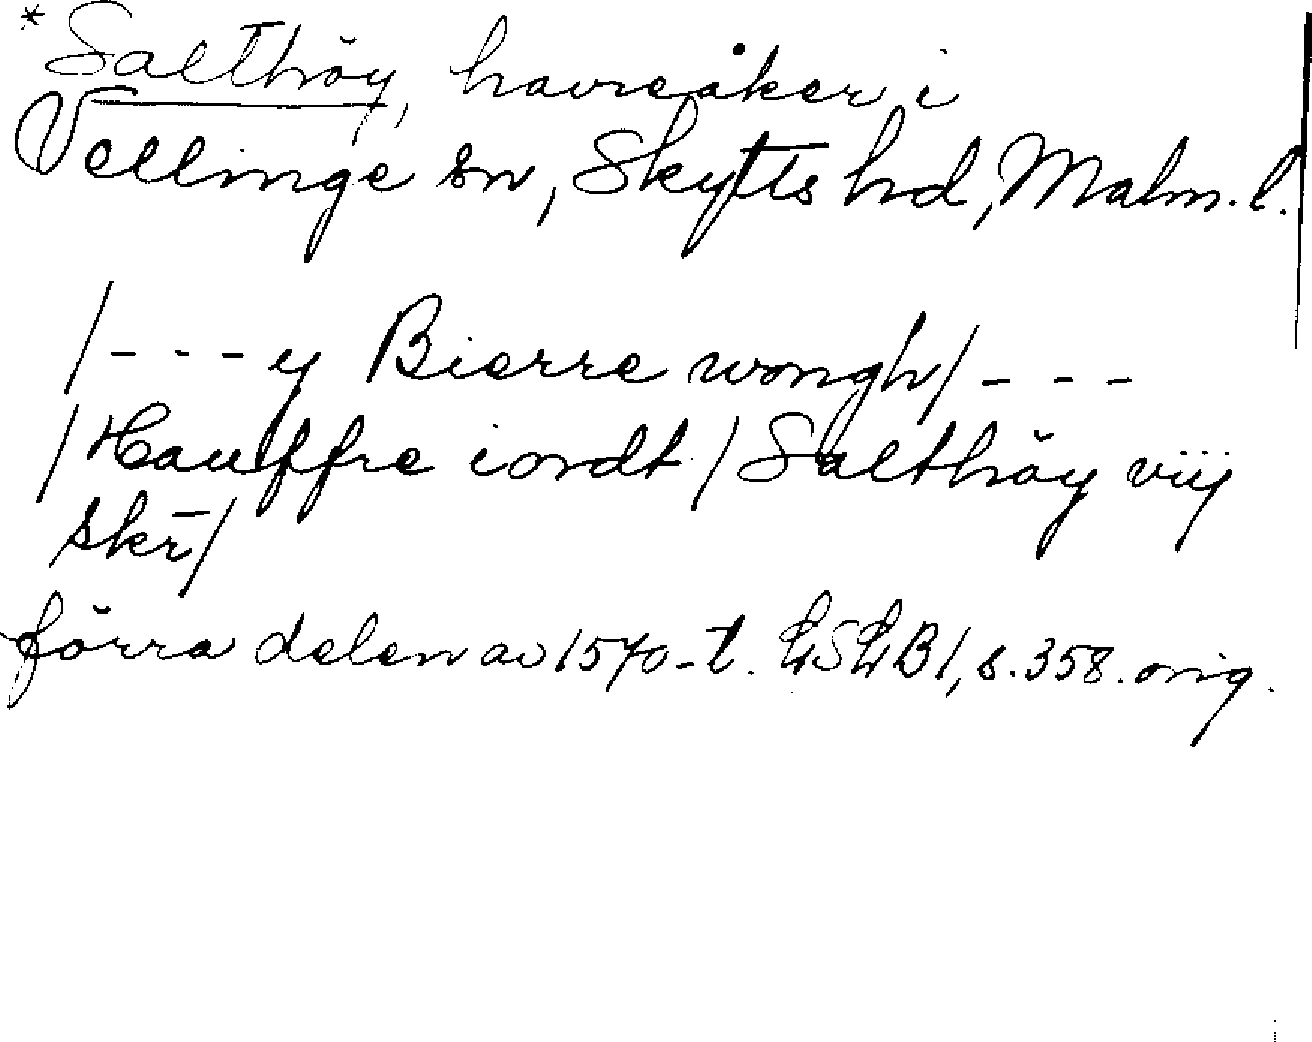 *Salthöy, havreåker i
Vellinge sn, Skytts hd, Malm. l.
/- - - y Bierre wongh/ - - -
/Hauffre iordt / Salthöy viij
skr̄/
förra delen av 1570-t. LSLB1, s. 358. orig.